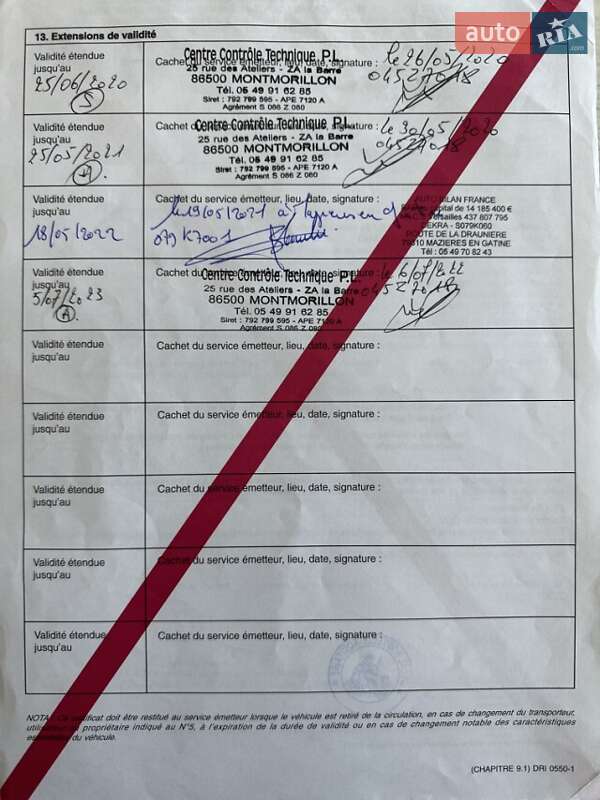 auto
RIA.com
13. Extensions de validité
Validité étendue
jusqu'au
25/06/2020
S
Cachet du service émetteur, lieu, date, signature :
Centre Contrôle Technique P.L.
25 rue des Ateliers - ZA la Barre
86500 MONTMORILLON
Tél. 05 49 91 62 85
Siret : 792 799 595 - APE 7120 A
Agrément S 086 Z 060
le 26/05/2020
04527018
Validité étendue
jusqu'au
25/05/2021
A
Cachet du service émetteur, lieu, date, signature :
Centre Contrôle Technique P.L.
25 rue des Ateliers - ZA la Barre
86500 MONTMORILLON
Tél. 05 49 91 62 85
Siret : 792 799 595 - APE 7120 A
Agrément S 086 Z 060
le 30/05/2020
04527018
Validité étendue
jusqu'au
18/05/2022
Cachet du service émetteur, lieu, date, signature :
le 19/05/2021 à
079K7001
AUTO BILAN FRANCE
capital de 14 185 400 €
Versailles 437 807 795
DEKRA - S079K060
ROUTE DE LA DRAUNIERE
79310 MAZIERES EN GATINE
Tél : 05 49 70 82 43
Validité étendue
jusqu'au
5/07/2023
A
Centre Contrôle Technique P.L.
25 rue des Ateliers - ZA la Barre
86500 MONTMORILLON
Tél. 05 49 91 62 85
Siret : 792 799 595 - APE 7120 A
Agrément S 086 Z 060
le 6/07/22
04527018
Validité étendue
jusqu'au
Cachet du service émetteur, lieu, date, signature :
Validité étendue
jusqu'au
Cachet du service émetteur, lieu, date, signature :
Validité étendue
jusqu'au
Cachet du service émetteur, lieu, date, signature :
Validité étendue
jusqu'au
Cachet du service émetteur, lieu, date, signature :
Validité étendue
jusqu'au
Cachet du service émetteur, lieu, date, signature :
NOTA : Ce certificat doit être restitué au service émetteur lorsque le véhicule est retiré de la circulation, en cas de changement du transporteur,
utilisateur ou propriétaire indiqué au N°5, à l'expiration de la durée de validité ou en cas de changement notable des caractéristiques
essentielles du véhicule.
(CHAPITRE 9.1) DRI 0550-1